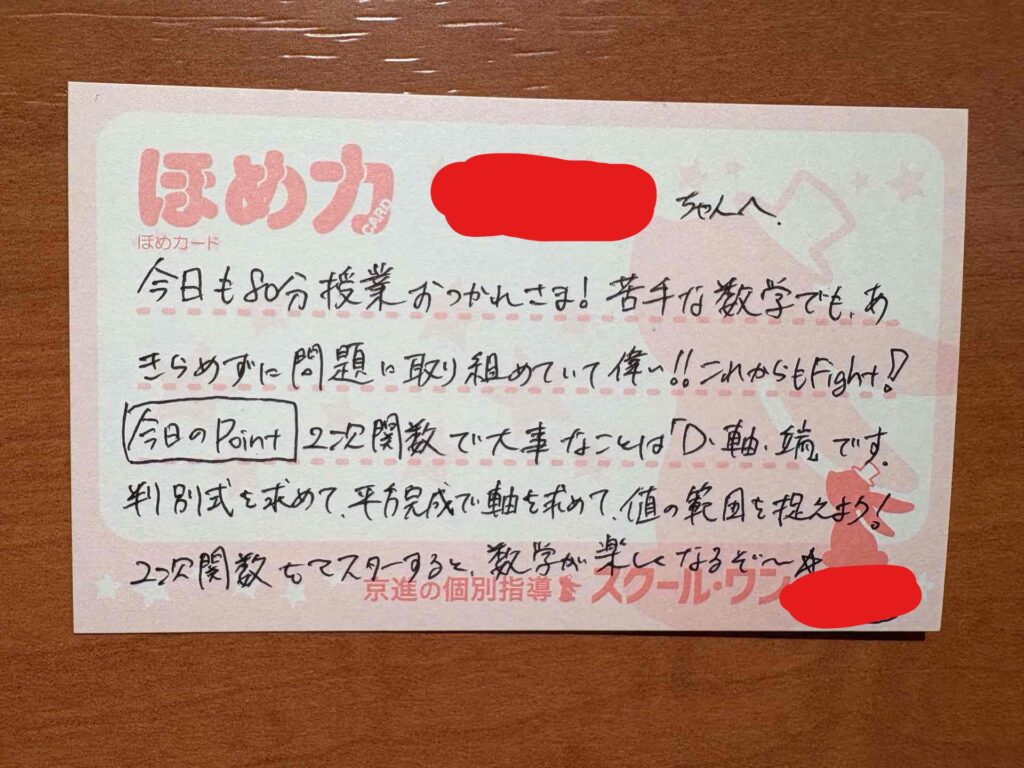 ほめ力
CARD
ほめカード
ちゃんへ.
今日も80分授業おつかれさま!苦手な数学でも、あ
きらめずに問題に取り組めていて偉い!!これからもFight!
今日のPoint 2次関数で大事なことは「D・軸・端」です.
判別式を求めて、平方完成で軸を求めて、値の範囲を捉えよう!
2次関数をマスターすると、数学が楽しくなるぞ〜☆
京進の個別指導 スクール・ワン